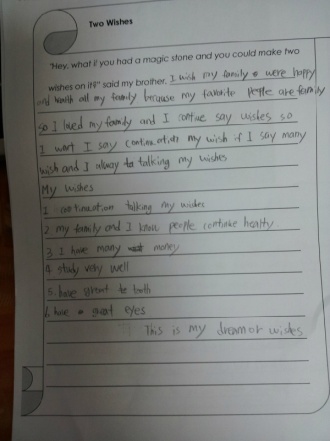 Two Wishes
"Hey, what if you had a magic stone and you could make two
wishes on it?" said my brother. I wish my family were happy
and all my family because my favorite people are family
so I loved my family and I say wishes so
I want I say continuation my wish if I say many
wish and I always to talking my wishes
My wishes
1. continuation talking my wishes
2. my family and I know people continue healty
3. I have many money
4. study very well
5. have to tooth
6. have a great eyes
This is my dream or wishes